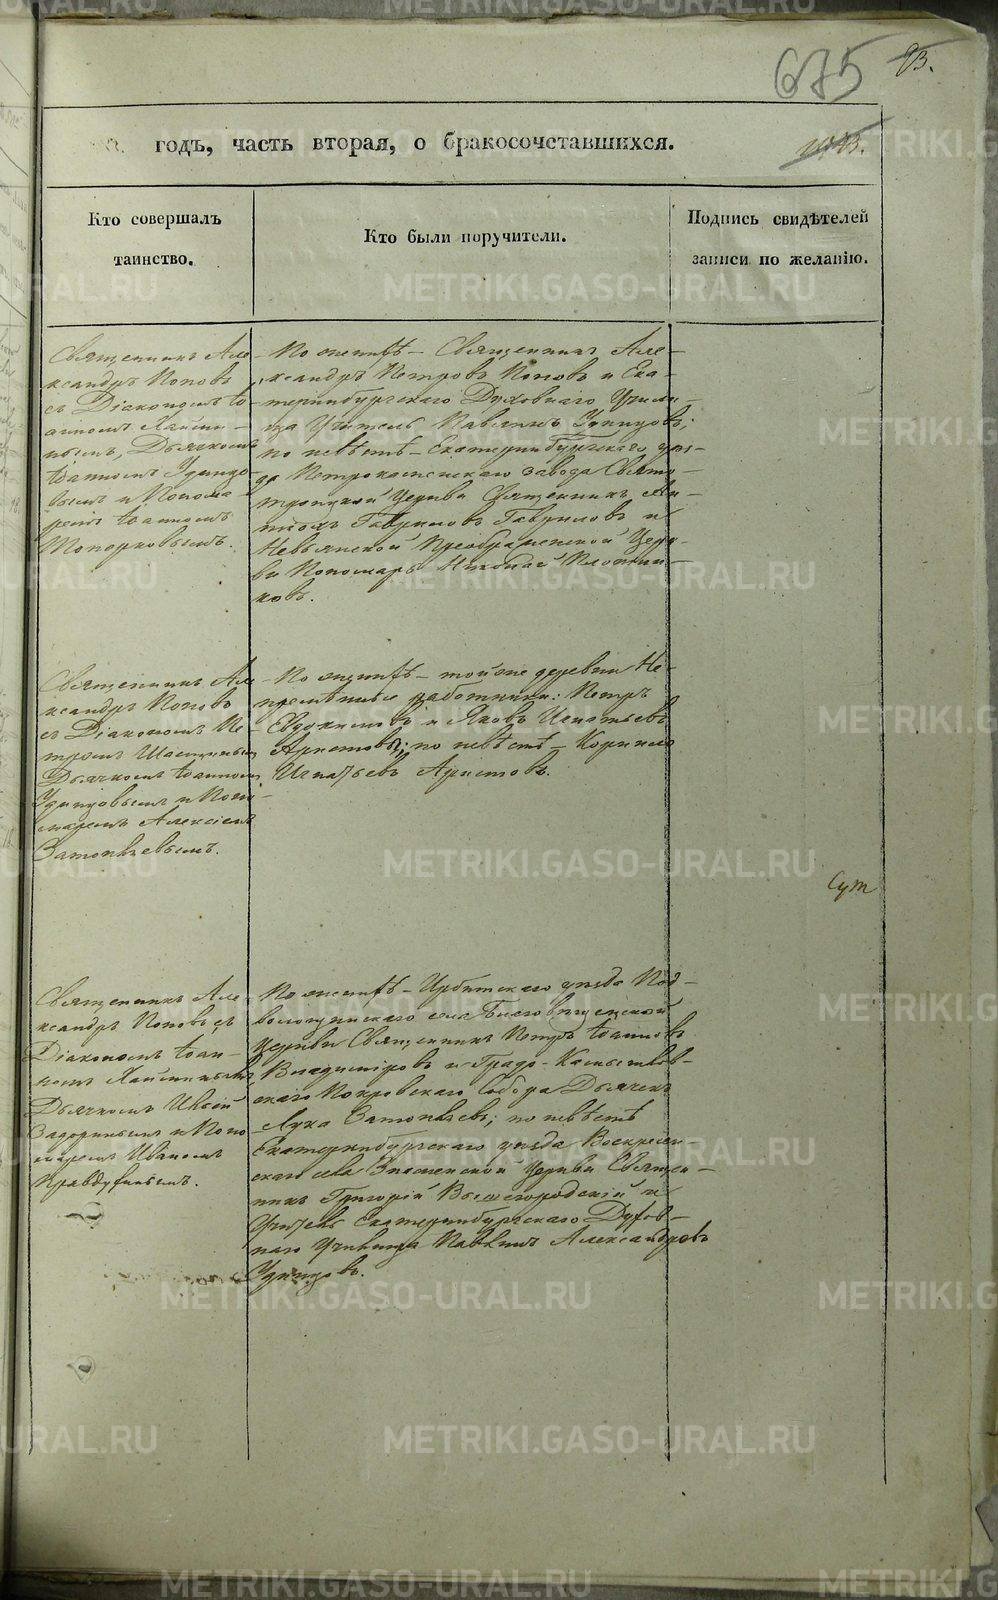 675
93.
годъ, часть вторая, о бракосочетавшихся.
Кто совершалъ
таинство.
Кто были поручители.
Подпись свидѣтелей
записи по желанію.
Священникъ Але-
ксандръ Поповъ
съ Діакономъ Іо-
анномъ
нымъ, Дьячкомъ
Іоанномъ Удинцо-
вымъ и Понома-
ремъ Іоанномъ
Топорковымъ.
По женихѣ – Священникъ Але-
ксандръ Петровъ Поповъ и Ека-
теринбургскаго Духовнаго Учили-
ща Учитель Павлинъ Удинцовъ;
по невѣстѣ – Екатеринбургскаго уѣз-
да Петрокаменскаго завода Свято-
троицкой Церкви Священникъ
Гавриловъ Гавриловъ и
Невьянской Преображенской Церк-
ви Пономарь Николай Плотни-
ковъ.
Священникъ Але-
ксандръ Поповъ
съ Діакономъ Пе-
тромъ
Дьячкомъ Іоанномъ
Удинцовымъ и Поно-
маремъ Алексіемъ
Затопляевымъ.
По женихѣ – той же деревни Не-
премѣнные работники: Петръ
Евдокимовъ и Яковъ Игнатьевъ
Аристовы; по невѣстѣ – Корнило
Игнатьевъ Аристовъ.
Сут
Священникъ Але-
ксандръ Поповъ съ
Діакономъ Іоан-
номъ
Дьячкомъ
Задоринымъ и Поно-
маремъ Иваномъ
Правдухинымъ.
По женихѣ – Ирбитскаго уѣзда Под-
волошинскаго села Благовѣщенской
Церкви Священникъ Петръ Іоанновъ
Владиміровъ и Градо-Камышлов-
скаго Покровскаго Собора Дьячекъ
Лука Затопляевъ; по невѣстѣ
Екатеринбургскаго уѣзда Воскресен-
скаго села Знаменской Церкви Священ-
никъ Григорій Вышегородскій и
Учитель Екатеринбургскаго Духов-
наго Училища Павлинъ Александровъ
Удинцовъ.